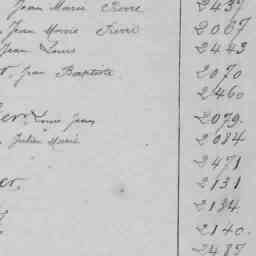 Jean Marie Pierre 2437
Jean Marie Pierre 2067
Jean Louis 2443
Jean Baptiste 2070
2460
Louis Jean 2079
Julien Marie 2084
2471
er. 2131
2134
2140
2487